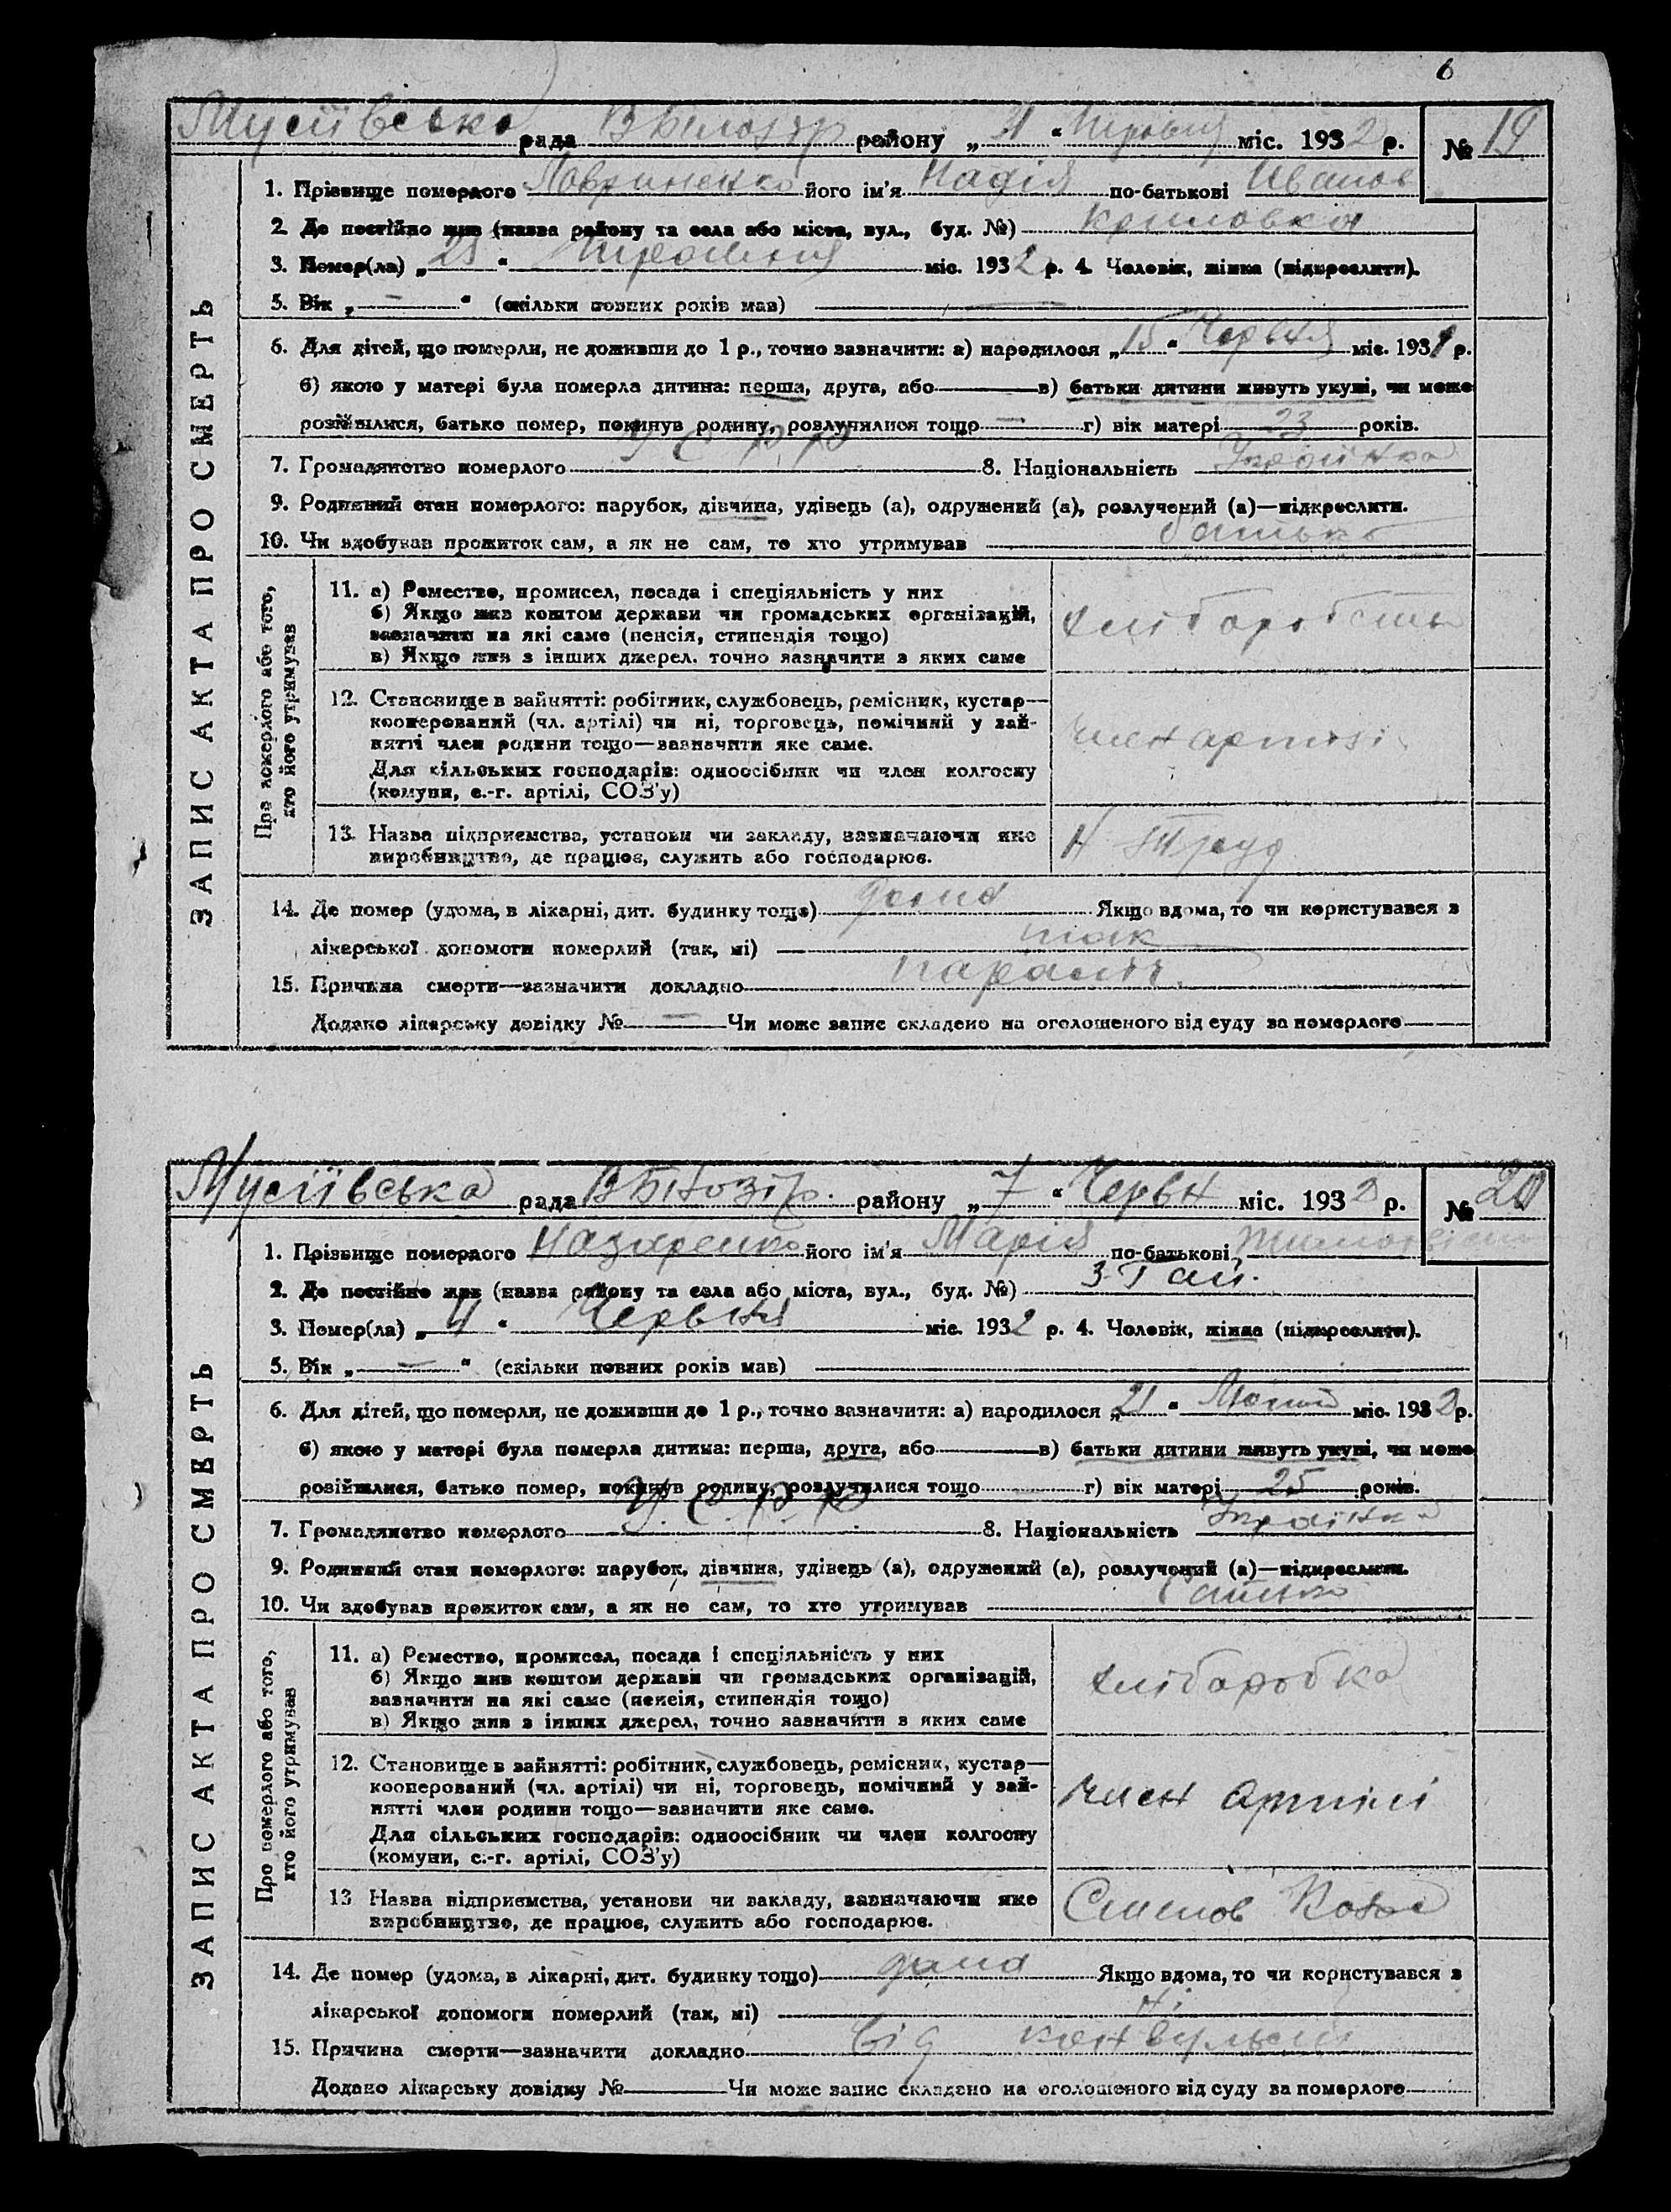 6
Мусіївсько рада В Білозір району „ “ міс. 1932 р. № 19
1. Прізвище померлого Лавриненко його ім'я Надія по-батькові Иванов
2. Де постійно жив (назва району та села або міста, вул., буд. №) Криловка
3. Помер(ла) „ “ міс. 1932 р. 4. Чоловік, жінка (підкреслити).
5. Вік „ — “ (скільки повних років мав) —
6. Для дітей, що померли, не доживши до 1 р., точно зазначити: а) народилося „15“ Червня міс. 1931 р.
б) якою у матері була померла дитина: перша, друга, або — в) батьки дитини живуть укупі, чи може
розійшлися, батько помер, покинув родину, розлучилися тощо — г) вік матері 23 років.
7. Громадянство померлого У С Р Р 8. Національність Українка
9. Родинний стан померлого: парубок, дівчина, удівець (а), одружений (а), розлучений (а)—підкреслити.
10. Чи здобував прожиток сам, а як не сам, то хто утримував батько
ЗАПИС АКТА ПРО СМЕРТЬ
Про померлого або того,
хто його утримував
11. а) Ремество, промисел, посада і спеціяльність у них
б) Якщо жив коштом держави чи громадських організацій,
зазначити на які саме (пенсія, стипендія тощо)
в) Якщо жив з інших джерел, точно зазначити з яких саме
12. Становище в зайнятті: робітник, службовець, ремісник, кустар—
кооперований (чл. артілі) чи ні, торговець, помічний у зай-
нятті член родини тощо—зазначити яке саме.
Для сільських господарів: одноосібник чи член колгоспу
(комуни, с.-г. артілі, СОЗ'у)
член артілі
13. Назва підприємства, установи чи закладу, зазначаючи яке
виробництво, де працює, служить або господарює.
Н Труд
14. Де помер (удома, в лікарні, дит. будинку тощо) дома Якщо вдома, то чи користувався з
лікарської допомоги померлий (так, ні) так
15. Причина смерти—зазначити докладно параліч.
Додано лікарську довідку № — Чи може запис складено на оголошеного від суду за померлого —
Мусіївська рада В Білозір. району „7“ Червн міс. 1932 р. № 20
1. Прізвище померлого Назаренко його ім'я Марія по-батькові
2. Де постійно жив (назва району та села або міста, вул., буд. №) З-Гай.
3. Помер(ла) „ “ Червня міс. 1932 р. 4. Чоловік, жінка (підкреслити).
5. Вік „ — “ (скільки повних років мав)
6. Для дітей, що померли, не доживши до 1 р., точно зазначити: а) народилося „21“ міс. 1932 р.
б) якою у матері була померла дитина: перша, друга, або — в) батьки дитини живуть укупі, чи може
розійшлися, батько помер, покинув родину, розлучилися тощо г) вік матері 25 років.
7. Громадянство померлого У. С. Р. Р 8. Національність Українка
9. Родинний стан померлого: парубок, дівчина, удівець (а), одружений (а), розлучений (а)—підкреслити.
10. Чи здобував прожиток сам, а як не сам, то хто утримував батько
ЗАПИС АКТА ПРО СМЕРТЬ
Про померлого або того,
хто його утримував
11. а) Ремество, промисел, посада і спеціяльність у них
б) Якщо жив коштом держави чи громадських організацій,
зазначити на які саме (пенсія, стипендія тощо)
в) Якщо жив з інших джерел, точно зазначити з яких саме
хліборобка
12. Становище в зайнятті: робітник, службовець, ремісник, кустар—
кооперований (чл. артілі) чи ні, торговець, помічний у зай-
нятті член родини тощо—зазначити яке саме.
Для сільських господарів: одноосібник чи член колгоспу
(комуни, с.-г. артілі, СОЗ'у)
член артілі
13 Назва підприємства, установи чи закладу, зазначаючи яке
виробництво, де працює, служить або господарює.
14. Де помер (удома, в лікарні, дит. будинку тощо) дома Якщо вдома, то чи користувався з
лікарської допомоги померлий (так, ні) ні
15. Причина смерти—зазначити докладно від конвульсії
Додано лікарську довідку № Чи може запис складено на оголошеного від суду за померлого